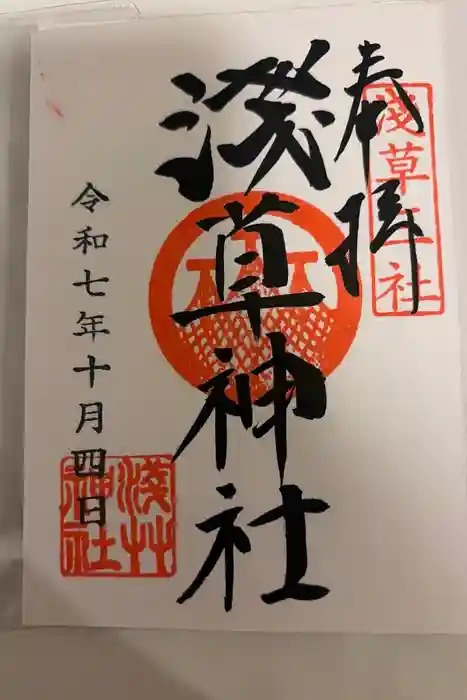 奉拝
淺草土社
淺草神社
令和七年十月四日
淺草神社